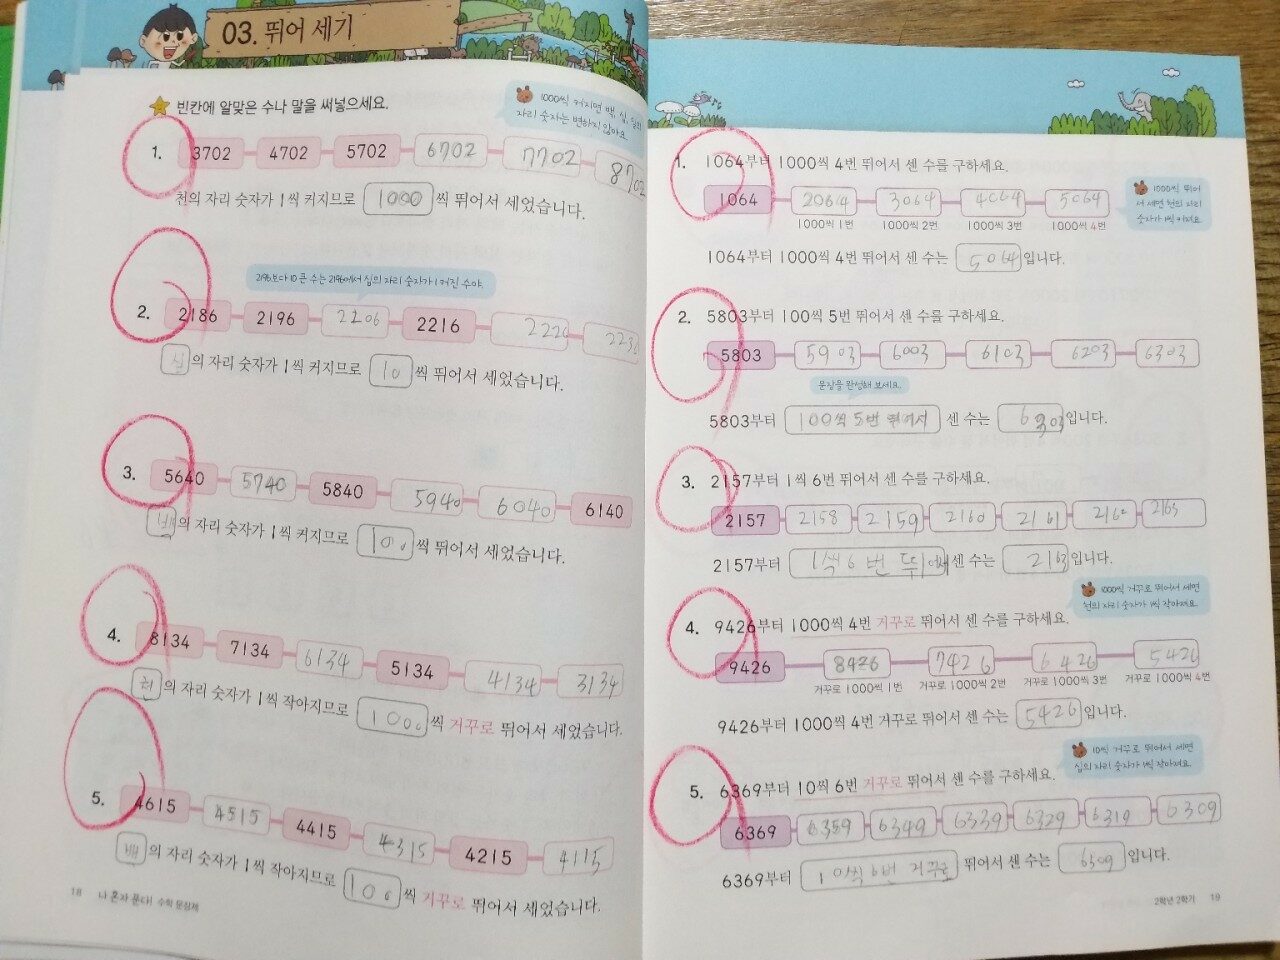 03. 뛰어 세기
빈칸에 알맞은 수나 말을 써넣으세요.
1000씩 커지면 백, 십, 일의
자리 숫자는 변하지 않아요.
1. 3702 4702 5702 6702 7702 8702
천의 자리 숫자가 1씩 커지므로 1000 씩 뛰어서 세었습니다.
2196보다 10 큰 수는 2196에서 십의 자리 숫자가 1 커진 수야.
2. 2186 2196 2206 2216 2226 2236
십의 자리 숫자가 1씩 커지므로 10 씩 뛰어서 세었습니다.
3. 5640 5740 5840 5940 6040 6140
백의 자리 숫자가 1씩 커지므로 100 씩 뛰어서 세었습니다.
4. 8134 7134 6134 5134 4134 3134
천의 자리 숫자가 1씩 작아지므로 1000 씩 거꾸로 뛰어서 세었습니다.
5. 4615 4515 4415 4315 4215 4115
백의 자리 숫자가 1씩 작아지므로 100 씩 거꾸로 뛰어서 세었습니다.
18 나 혼자 푼다! 수학 문장제
1. 1064부터 1000씩 4번 뛰어서 센 수를 구하세요.
1064 2064 3064 4064 5064
1000씩 1번 1000씩 2번 1000씩 3번 1000씩 4번
1000씩 뛰어
서 세면 천의 자리
숫자가 1씩 커져요.
1064부터 1000씩 4번 뛰어서 센 수는 5064 입니다.
2. 5803부터 100씩 5번 뛰어서 센 수를 구하세요.
5803 5903 6003 6103 6203 6303
문장을 완성해 보세요.
5803부터 100씩 5번 뛰어서 센 수는 6303 입니다.
3. 2157부터 1씩 6번 뛰어서 센 수를 구하세요.
2157 2158 2159 2160 2161 2162 2163
2157부터 1씩 6번 뛰어서 센 수는 2163 입니다.
1000씩 거꾸로 뛰어서 세면
천의 자리 숫자가 1씩 작아져요.
4. 9426부터 1000씩 4번 거꾸로 뛰어서 센 수를 구하세요.
9426 8426 7426 6426 5426
거꾸로 1000씩 1번 거꾸로 1000씩 2번 거꾸로 1000씩 3번 거꾸로 1000씩 4번
9426부터 1000씩 4번 거꾸로 뛰어서 센 수는 5426 입니다.
10씩 거꾸로 뛰어서 세면
십의 자리 숫자가 1씩 작아져요.
5. 6369부터 10씩 6번 거꾸로 뛰어서 센 수를 구하세요.
6369 6359 6349 6339 6329 6319 6309
6369부터 10씩 6번 거꾸로 뛰어서 센 수는 6309 입니다.
2학년 2학기 19